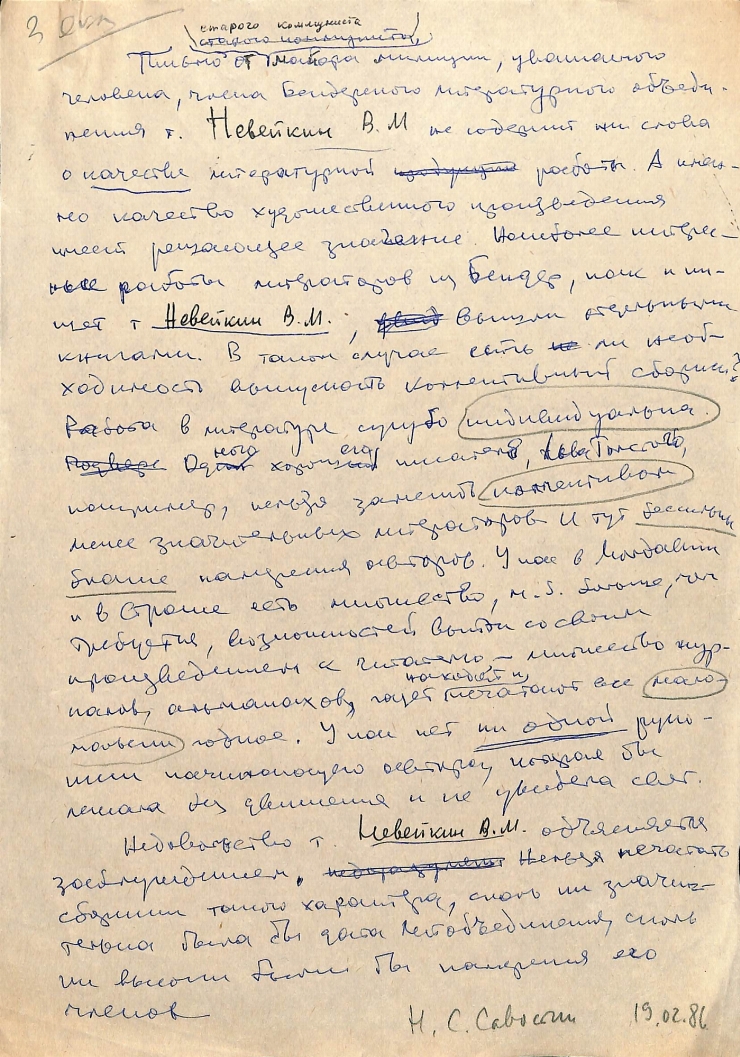 3 экз
старого коммуниста
старого коммуниста,
Письмо от майора милиции, уважаемого
человека, члена Бендерского литературного объеди-
нения т. Невейкин В.М не содержит ни слова
о качестве литературной продукции работы. А имен-
но качество художественного произведения
имеет решающее значение. Наиболее интерес-
ные работы литераторов из Бендер, как и пи-
шет т Невейкин В.М., вышли отдельными
книгами. В таком случае есть не ли необ-
ходимость выпускать коллективный сборник?
Работа в литературе сугубо индивидуальна.
Одного хорошего писателя, Льва Толстого,
например, нельзя заменить коллективом
менее значительных литераторов И тут бессильны
благие намерения авторов. У нас в Молдавии
и в Стране есть множество, м.б. больше, чем
требуется, возможностей выйти со своим
произведением к читателю, – множество жур-
налов, альманахов, газет находят и печатают все мало-
мальски годное. У нас нет ни одной руко-
писи начинающего автора, которая бы
лежала без движения и не увидела свет.
Недовольство т. Невейкин В.М. объясняется
заблуждением, Нельзя печатать
сборники такого характера, сколь ни значи-
тельна была бы дата литобъединения, сколь
ни высоки были бы намерения его
членов
Н. С. Савостин 19.02.86